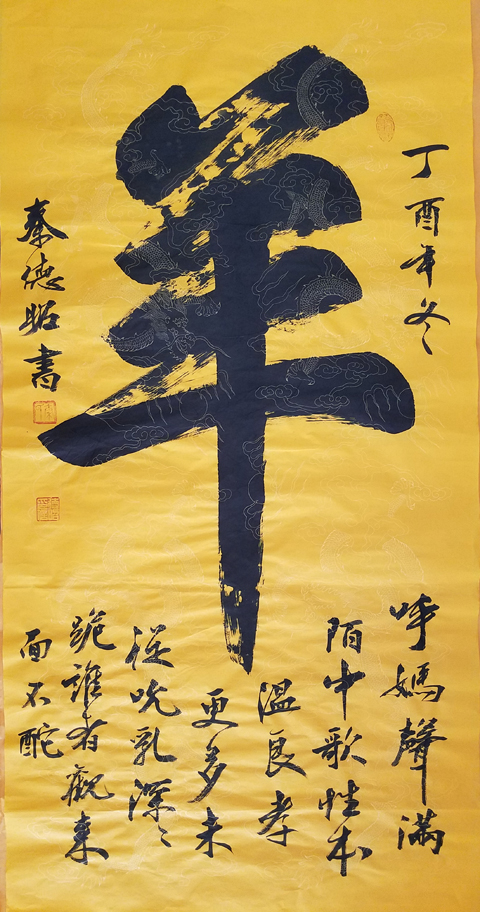 丁酉年冬
羊
呼媽聲滿
陌中歌性本
溫良孝
更多未
從吮乳深〻
跪誰有觀來
面不酡
秦德昭書